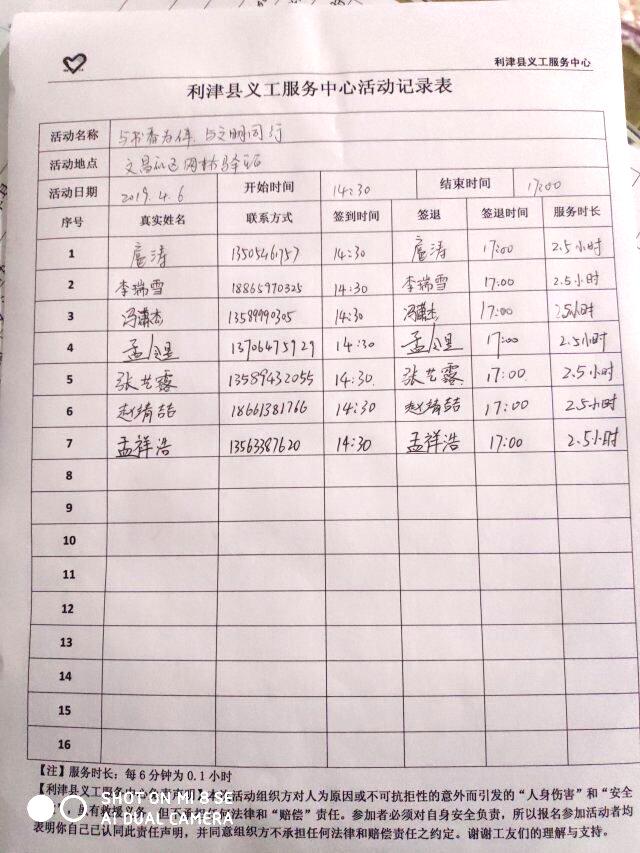 利津县义工服务中心
利津县义工服务中心活动记录表
活动名称 与书香为伴、与文明同行
活动地点 文昌社区阅林驿站
活动日期 2019.4.6 开始时间 14:30 结束时间 17:00
序号 真实姓名 联系方式 签到时间 签退 签退时间 服务时长
1 扈涛 13505461757 14:30 扈涛 17:00 2.5小时
2 李瑞雪 18865970325 14:30 李瑞雪 17:00 2.5小时
3 冯潇杰 13589990305 14:30 冯潇杰 17:00 2.5小时
4 孟令昱 13706475929 14:30 孟令昱 17:00 2.5小时
5 张艺露 13589432055 14:30 张艺露 17:00 2.5小时
6 赵绮喆 18661381766 14:30 赵绮喆 17:00 2.5小时
7 孟祥浩 13563387620 14:30 孟祥浩 17:00 2.5小时
8
9
10
11
12
13
14
15
16
【注】服务时长：每6分钟为0.1小时
【利津县义工服务中心 本次活动组织方对人为原因或不可抗拒性的意外而引发的“人身伤害”和“安全
有救援义务，但不承担 法律和“赔偿”责任。参加者必须对自身安全负责，所以报名参加活动者均
表明你自己已认同此责任声明，并同意组织方不承担任何法律和赔偿责任之约定。谢谢工友们的理解与支持。
SHOT ON MI 8 SE
AI DUAL CAMERA